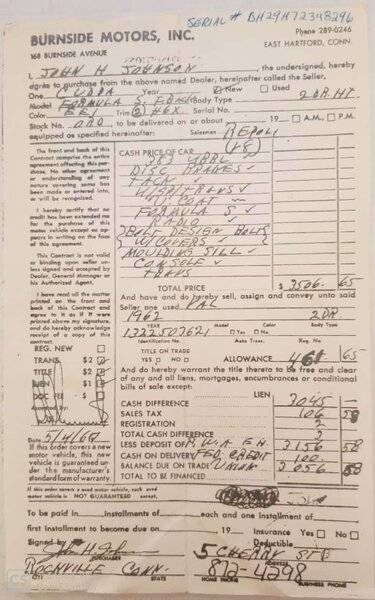 SERIAL # BH29H72348296
BURNSIDE MOTORS, INC.
Phone 289-0246
168 BURNSIDE AVENUE
EAST HARTFORD, CONN.
I, JOHN H JOHNSON the undersigned, hereby
agree to purchase from the above named Dealer, hereinafter called the Seller,
One CUDA Year New Used
Model FORMULA S. Body Type 2 DR. HT
Color Trim
Stock No. ORD to be delivered on or about 19 A.M., P.M.
equipped as specified hereinafter: Salesman REPOLI
The front and back of this
Contract comprise the entire
agreement affecting this purchase.
No other agreement
or understanding of any
nature concerning same has
been made or entered into,
or will be recognized.
I hereby certify that no
credit has been extended to
me for the purchase of this
motor vehicle except as appears
in writing on the face
of this agreement.
This Contract is not valid
or binding upon seller unless
signed and accepted by
Dealer, General Manager or
his Authorized Agent.
I have read all the matter
printed on the front and
back of this Contract and
agree to it as if it were
printed above my signature,
and do hereby acknowledge
receipt of a copy of this
contract.
CASH PRICE OF CAR (V8)
383 4BBL ✓
DISC BRAKES ✓
TACH ✓
W/S
U/COAT
FORMULA S ✓
RADIO ✓
BOLT DESIGN
W/COVERS ✓
MOULDING SILL ✓
CONSOLE ✓
TRANS
TOTAL PRICE $ 3506. 65
And have and do hereby sell, assign and convey unto said
Seller one used VAL
1962 2 DR.
YEAR Model Color Body Type
1322507621 Yes No
Identification No. Auto Trans. Reg. No
TITLE ON TRADE
YES NO ALLOWANCE 461 65
And do hereby warrant the title thereto to be free and clear
of any and all liens, mortgages, encumbrances or conditional
bills of sale except: LIEN
REG. NEW
TRANS. $2
TITLE $2
LIEN $1
DOC FEE $
Accepted By:
Date 5/4/67
If this order covers a new
motor vehicle, this new
vehicle is guaranteed under
the manufacturer's
standard form of warranty.
CASH DIFFERENCE 3045 —
SALES TAX 106 58
REGISTRATION 2
TOTAL CASH DIFFERENCE 3
LESS DEPOSIT OR P.W.A E.H. 3156 58
CASH ON DELIVERY FED. CREDIT 100
BALANCE DUE ON TRADE UNION 3056 58
TOTAL TO BE FINANCED
If this order covers a used motor vehicle, such used
motor vehicle is NOT GUARANTEED except,
To be paid in installments of each and one installment of
first installment to become due on 19 Insurance Yes No
Deductible
Signed by 5 CHERRY ST
ROCKVILLE CONN. 872-4298
CITY STATE HOME PHONE BUSINESS PHONE